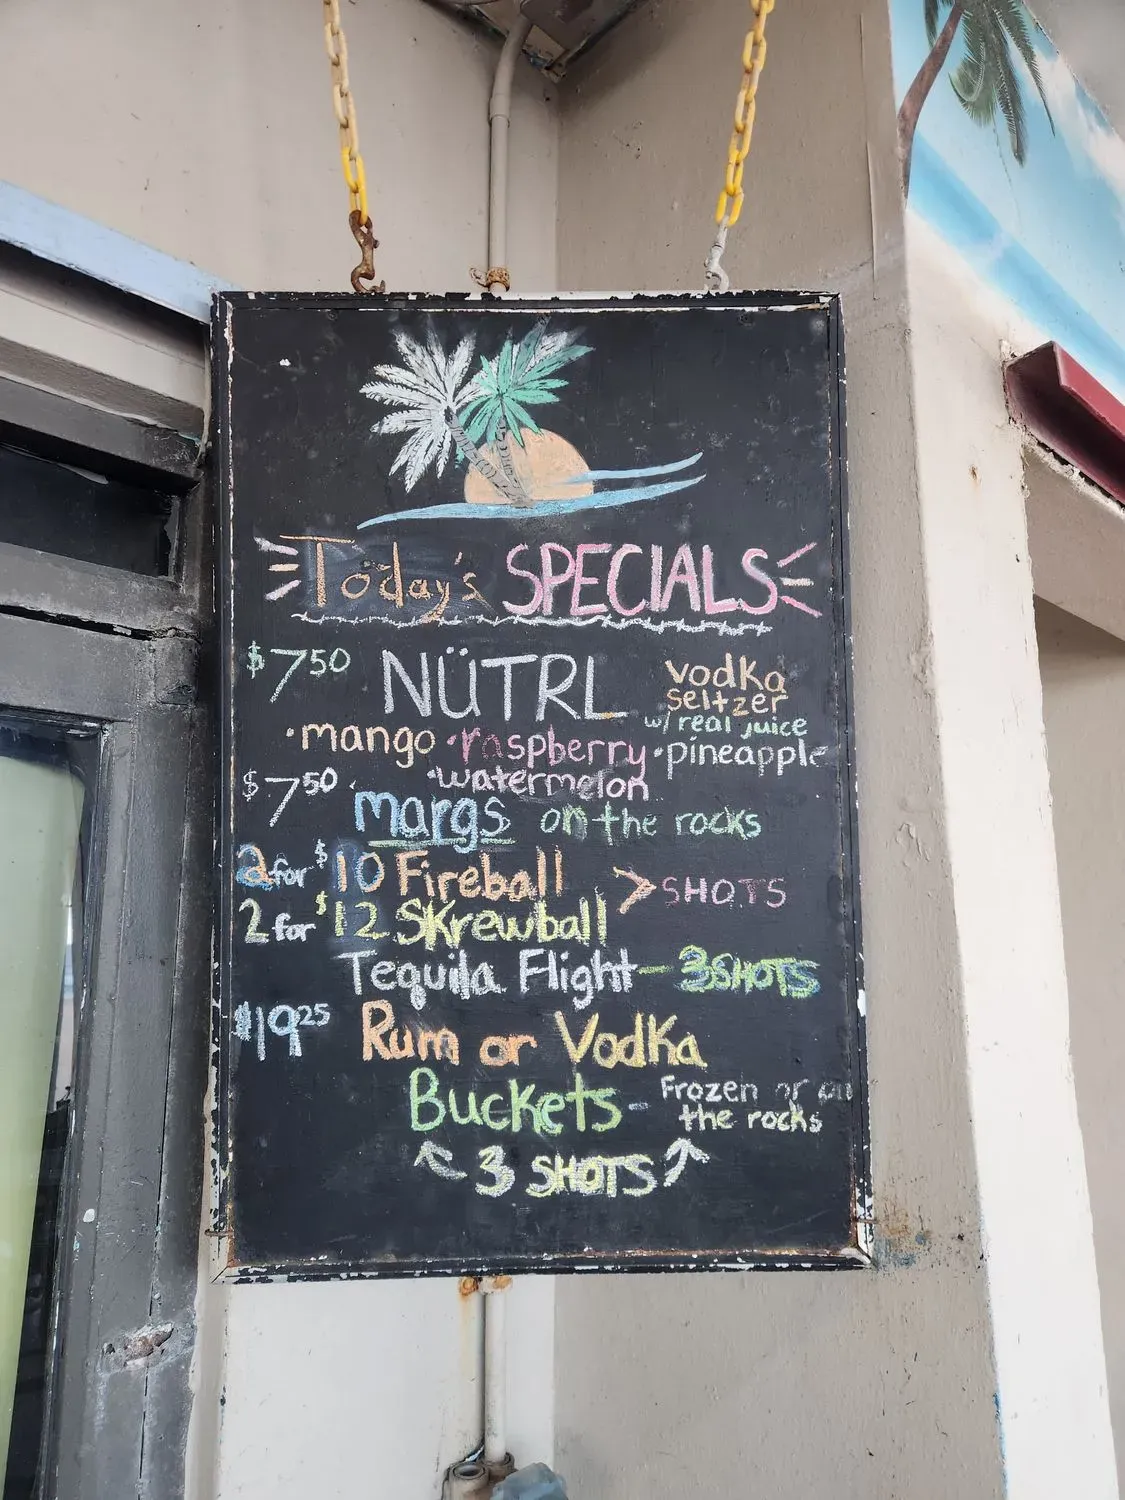 Today's SPECIALS
$7.50 NÜTRL vodka seltzer w/ real juice
·mango ·raspberry ·pineapple
·watermelon
$7.50 margs on the rocks
2 for $10 Fireball > SHOTS
2 for $12 Skrewball
Tequila Flight - 3 SHOTS
$19.25 Rum or Vodka
Buckets - Frozen or on the rocks
3 SHOTS